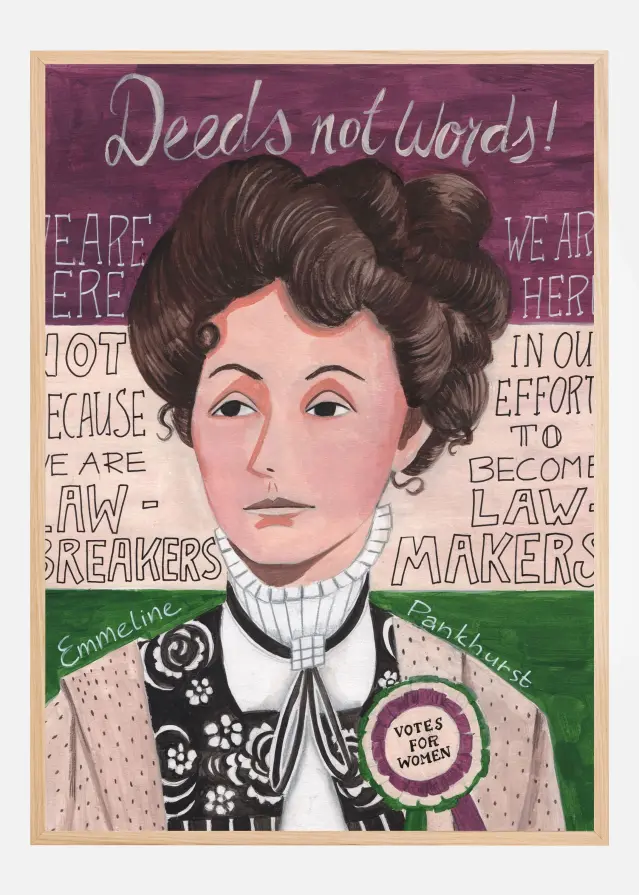 Deeds not Words!
WE ARE
ERE
NOT
ECAUSE
WE ARE
LAW-
BREAKERS
WE AR
HER
IN OU
EFFORT
TO
BECOME
LAW-
MAKERS
Emmeline
Pankhurst
VOTES
FOR
WOMEN